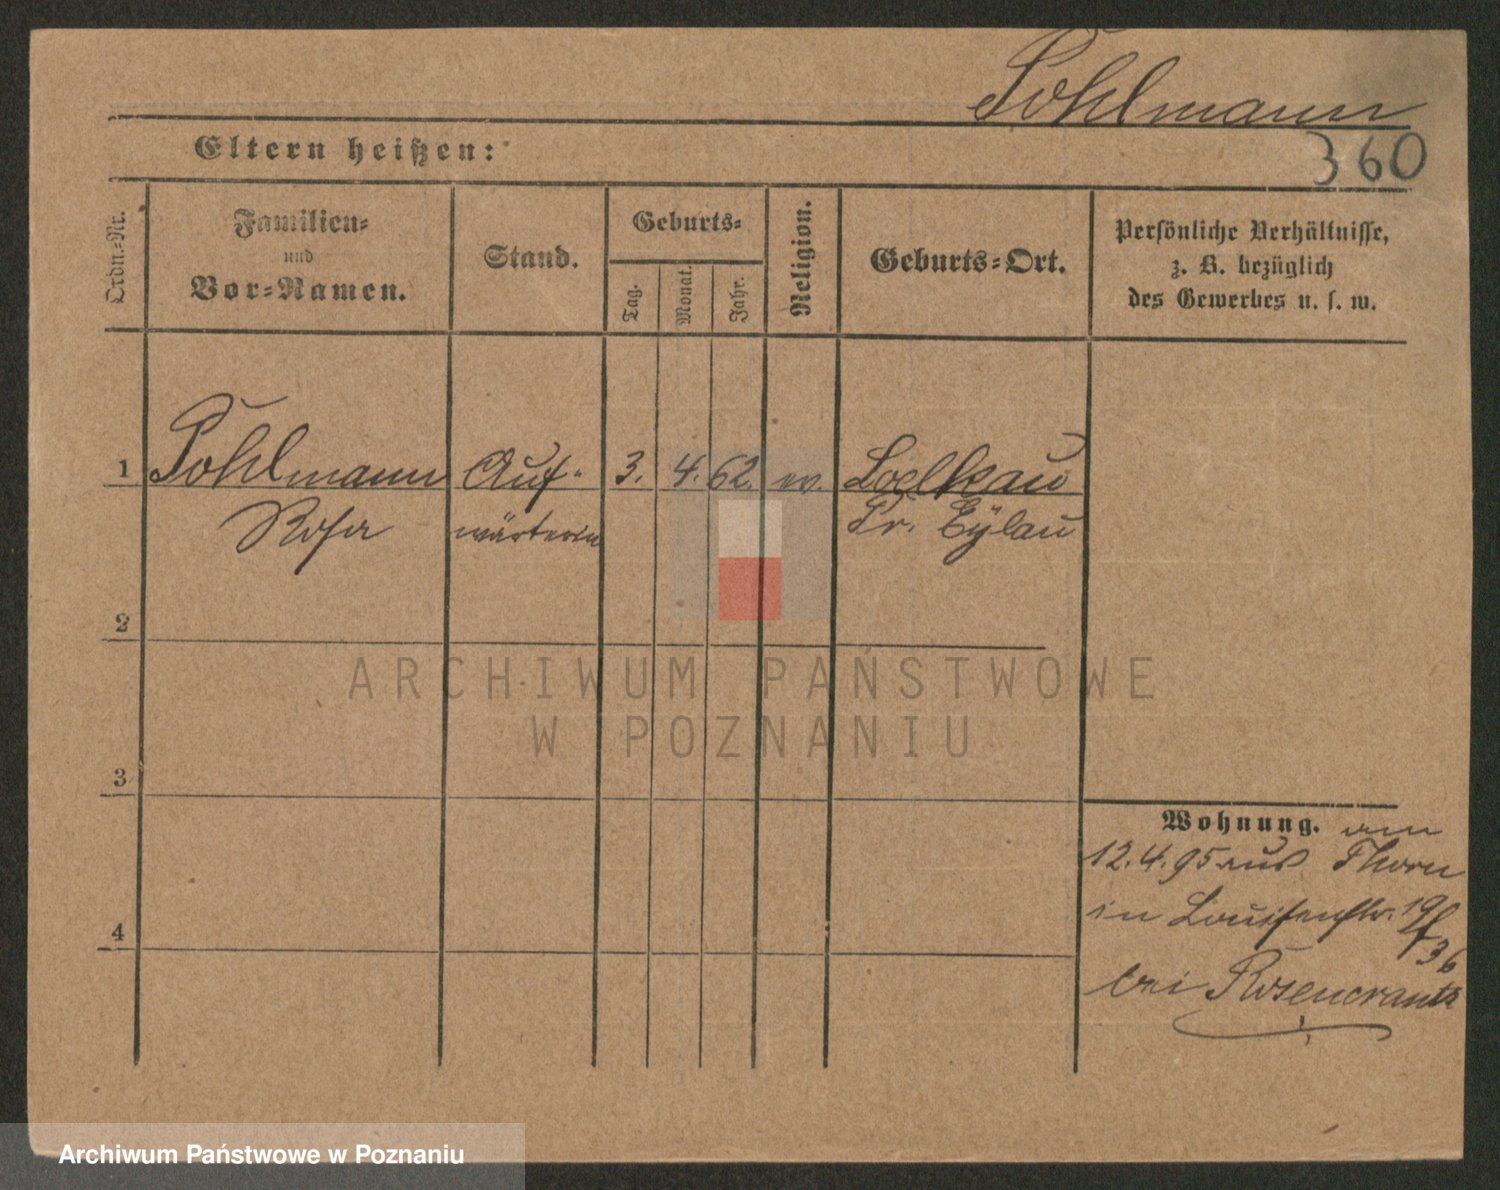 Pohlmann
Eltern heißen:
360
Ordn.-Nr.
Familien-
und
Vor-Namen.
Stand.
Geburts-
Tag.
Monat.
Jahr.
Religion.
Geburts-Ort.
Persönliche Verhältnisse,
z. B. bezüglich
des Gewerbes u. s. w.
1 Pohlmann Auf- 3. 4. 62. ev. Loelkau
Rosa wärterin Pr. Eylau
2
3
4
Wohnung. am
12.4.95 aus Thorn
in Louisenstr. 19/
36
bei Rosencrantz
ARCHIWUM PAŃSTWOWE
W POZNANIU
Archiwum Państwowe w Poznaniu